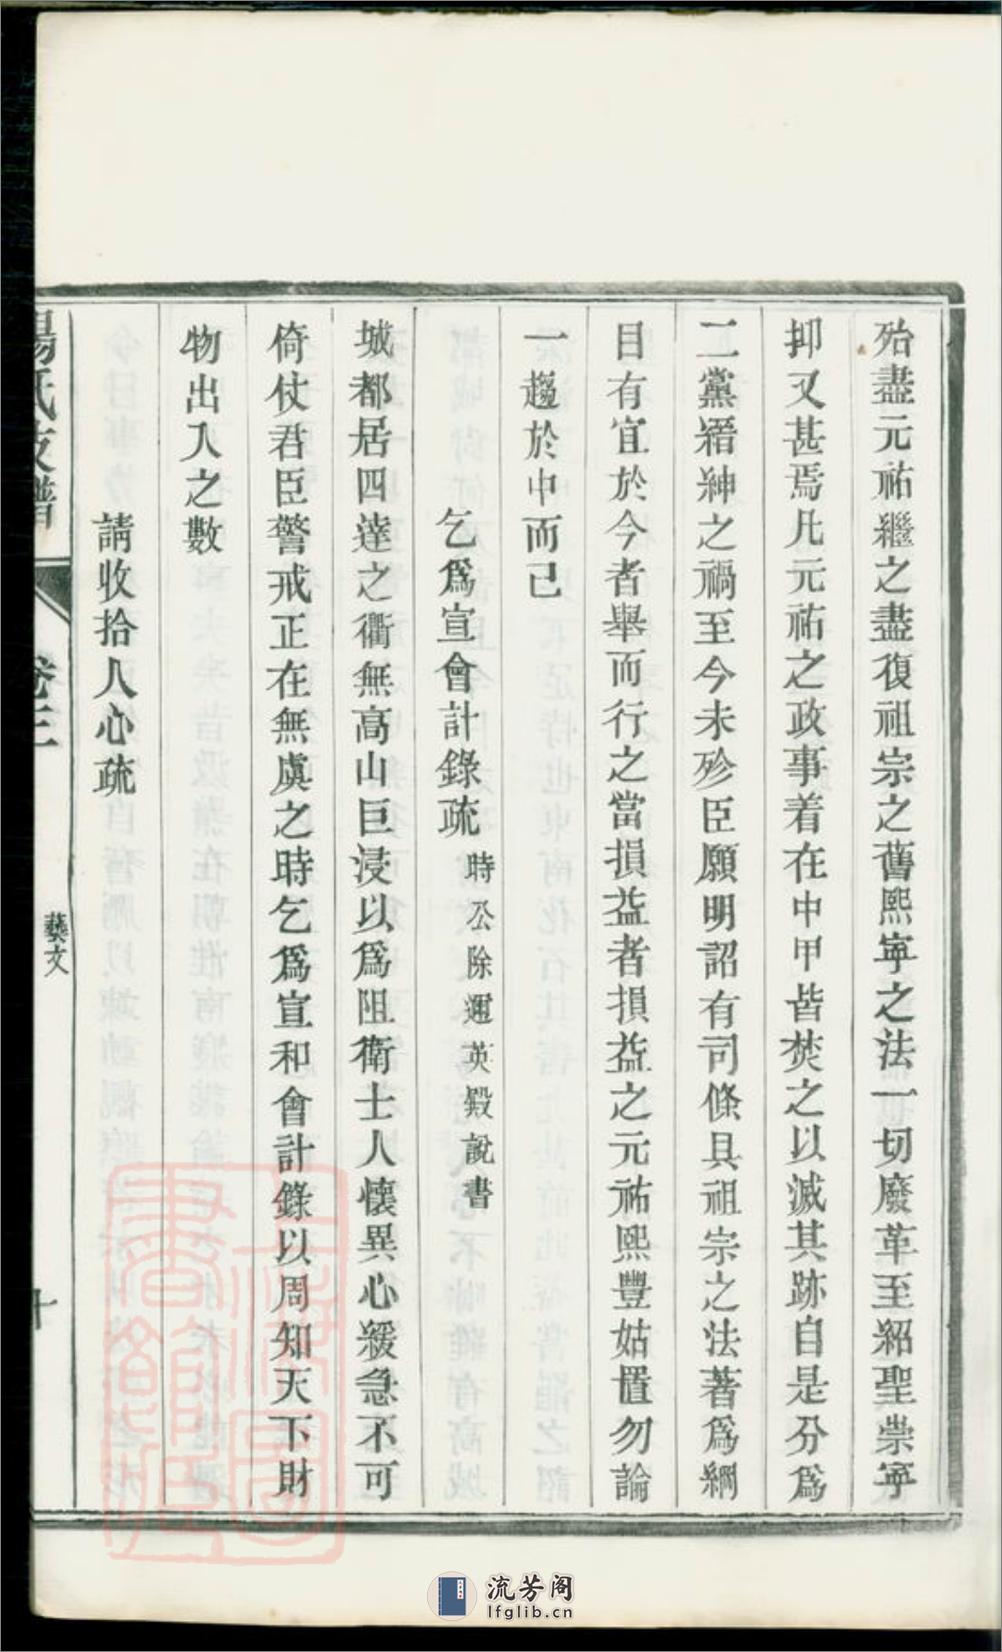 殆盡元祐繼之盡復祖宗之舊熙寧之法一切廢革至紹聖崇寧
抑又甚焉凡元祐之政事着在中甲皆焚之以滅其跡自是分爲
二黨縉紳之禍至今未殄臣願明詔有司條具祖宗之法著爲綱
目有宜於今者舉而行之當損益者損益之元祐熙豐姑置勿論
一趨於中而已
乞爲宣會計錄疏 時公除邇英殿說書
城都居四達之衢無高山巨浸以爲阻衛士人懷異心緩急不可
倚仗君臣警戒正在無虞之時乞爲宣和會計錄以周知天下財
物出入之數
請收拾人心疏
楊氏支譜 卷三 藝文 十
流芳阁
lfglib.cn